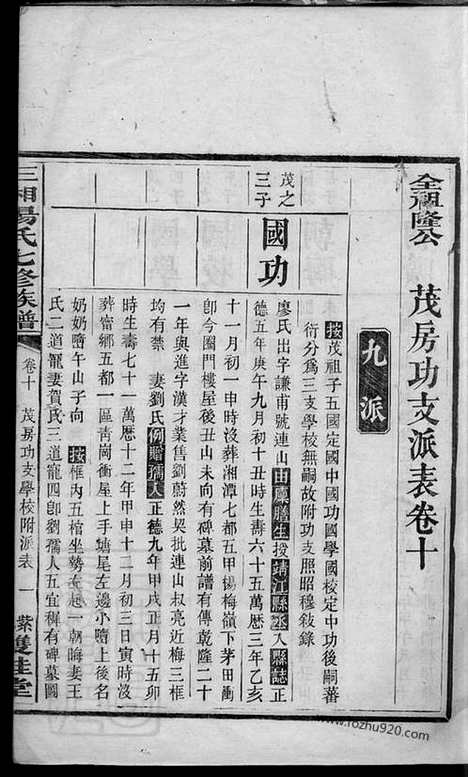 全祠隆公　茂房功支派表卷十
九派
按茂祖子五國定國中國功國學國校定中功後嗣蕃
衍分爲三支學校無嗣故附功支照昭穆敍錄
茂之
三子
國功
廖氏出字謙甫號連山由廩膳生授靖江縣丞入縣誌正
德五年庚午九月初十丑時生壽六十五萬曆三年乙亥
十一月初一申時沒葬湘潭七都五甲揚梅嶺下茅田衝
卽今圖門樓屋後丑山未向有碑墓前譜有傳乾隆二十
一年與進字漢才業售劉蔚然契批連山叔亮近梅三框
均有禁　妻劉氏例贈孺人正德九年甲戌正月十五卯
時生壽七十一萬曆十二年甲申十二月初三日寅時沒
葬甯鄉五都一區靑崗衝屋上手塘尾左邊小嘴上後名
奶奶嘴午山子向　按框內五棺坐勢左起一朝晦妻王
氏二道寵妻賀氏三道寵四卽劉孺人五宜稺有碑墓圖
三湘楊氏七修族譜
卷十　茂房功支學校附派表　一　紫
堂
www.rozhu920.com